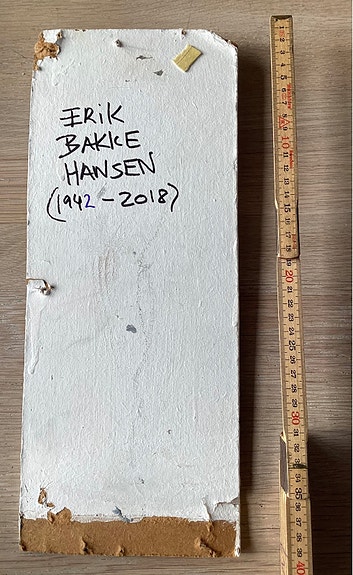 ERIK
BAKKE
HANSEN
(1942-2018)
1
2
3
4
5
6
7
8
9
10
11
12
13
14
15
16
17
18
19
20
21
22
23
24
25
26
27
28
29
30
31
32
33
34
35
36
37
38
39
40